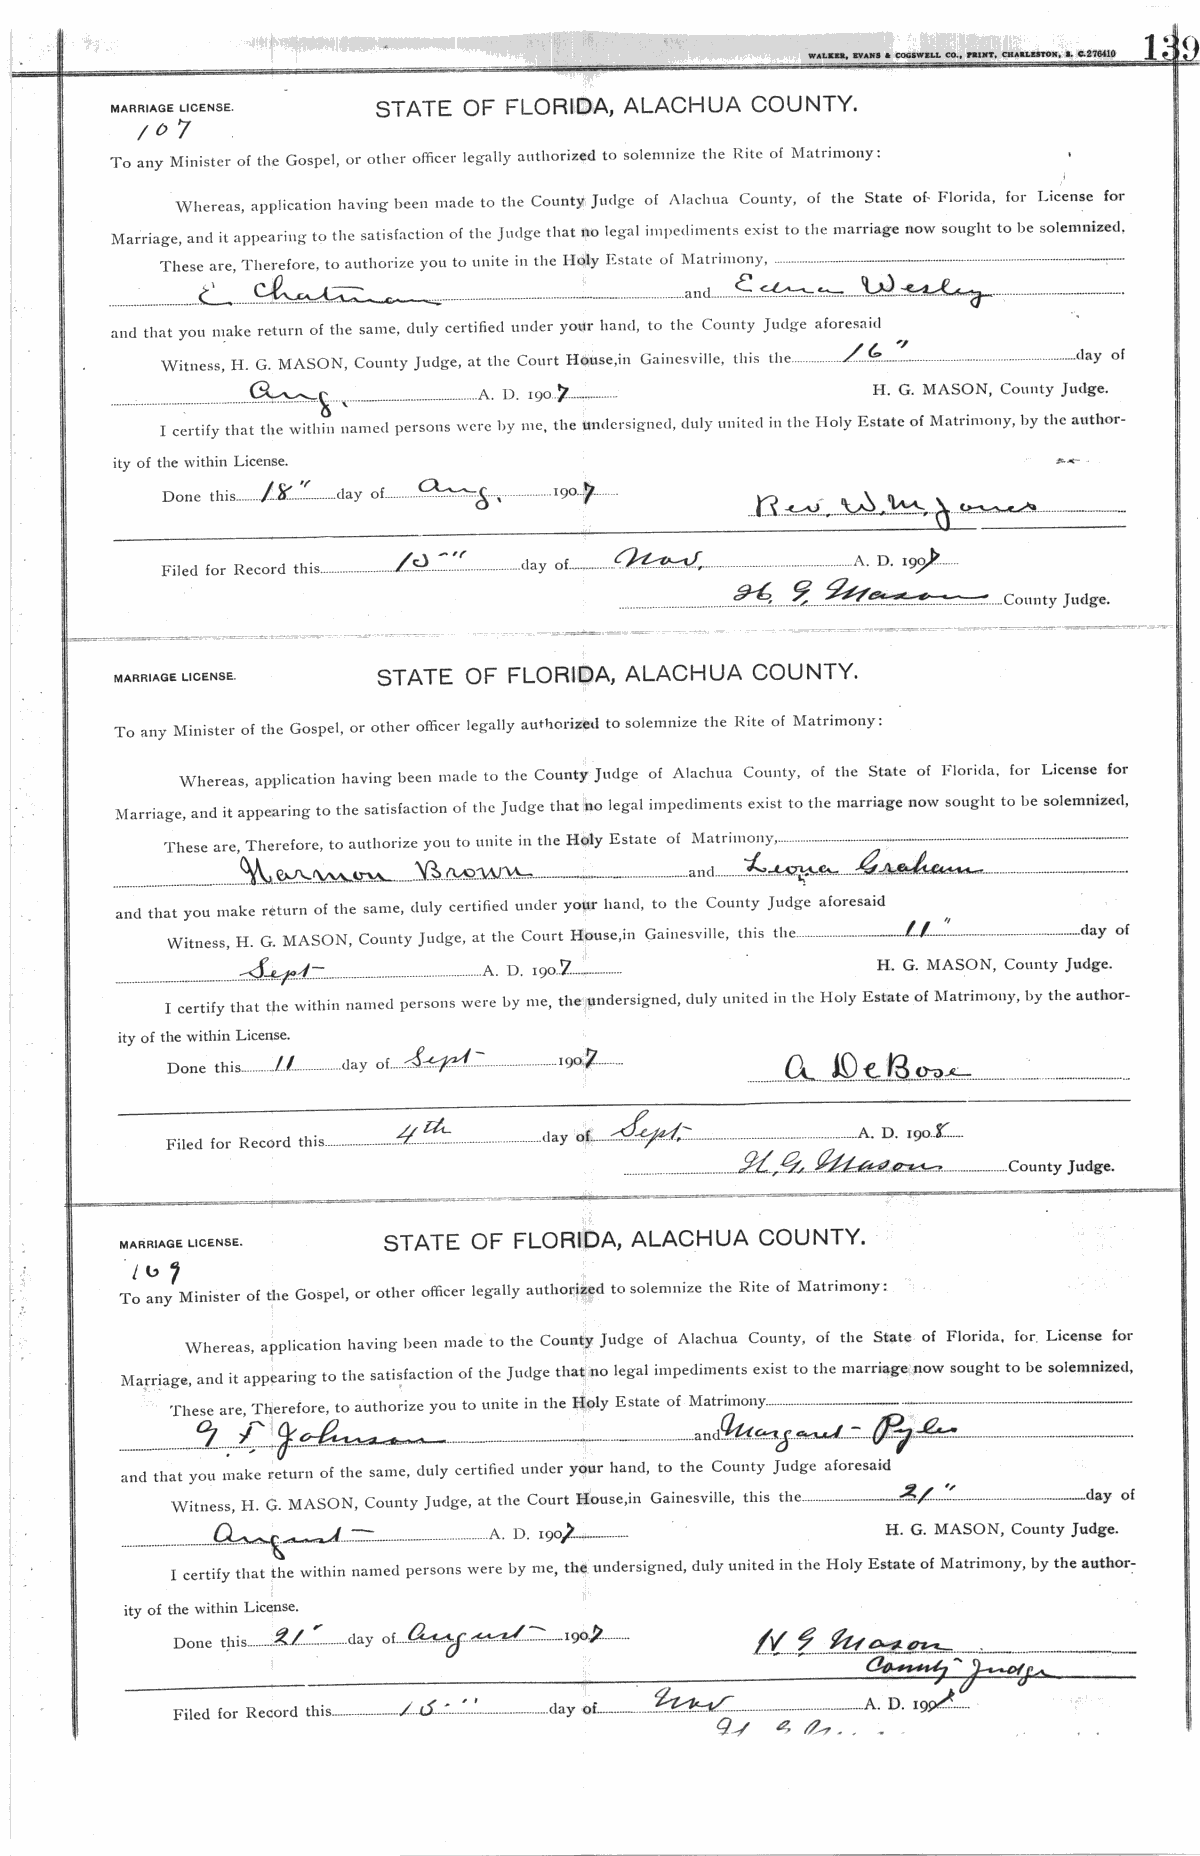 WALKER, EVANS & COGSWELL CO., PRINT, CHARLESTON, S. C. 276410 139
MARRIAGE LICENSE. STATE OF FLORIDA, ALACHUA COUNTY.
107
To any Minister of the Gospel, or other officer legally authorized to solemnize the Rite of Matrimony:
Whereas, application having been made to the County Judge of Alachua County, of the State of Florida, for License for
Marriage, and it appearing to the satisfaction of the Judge that no legal impediments exist to the marriage now sought to be solemnized,
These are, Therefore, to authorize you to unite in the Holy Estate of Matrimony,
E Chatman and Edna Wesley
and that you make return of the same, duly certified under your hand, to the County Judge aforesaid
Witness, H. G. MASON, County Judge, at the Court House, in Gainesville, this the 16" day of
Aug. A. D. 1907 H. G. MASON, County Judge.
I certify that the within named persons were by me, the undersigned, duly united in the Holy Estate of Matrimony, by the author-
ity of the within License.
Done this 18" day of Aug. 1907
Rev. W. M. Jones
Filed for Record this 15" day of Nov. A. D. 1907
H. G. Mason County Judge.
MARRIAGE LICENSE. STATE OF FLORIDA, ALACHUA COUNTY.
To any Minister of the Gospel, or other officer legally authorized to solemnize the Rite of Matrimony:
Whereas, application having been made to the County Judge of Alachua County, of the State of Florida, for License for
Marriage, and it appearing to the satisfaction of the Judge that no legal impediments exist to the marriage now sought to be solemnized,
These are, Therefore, to authorize you to unite in the Holy Estate of Matrimony,
Harmon Brown and Leona Graham
and that you make return of the same, duly certified under your hand, to the County Judge aforesaid
Witness, H. G. MASON, County Judge, at the Court House, in Gainesville, this the 11" day of
Sept A. D. 1907 H. G. MASON, County Judge.
I certify that the within named persons were by me, the undersigned, duly united in the Holy Estate of Matrimony, by the author-
ity of the within License.
Done this 11 day of Sept 1907
A DeBose
Filed for Record this 4th day of Sept. A. D. 1908
H. G. Mason County Judge.
MARRIAGE LICENSE. STATE OF FLORIDA, ALACHUA COUNTY.
109
To any Minister of the Gospel, or other officer legally authorized to solemnize the Rite of Matrimony:
Whereas, application having been made to the County Judge of Alachua County, of the State of Florida, for License for
Marriage, and it appearing to the satisfaction of the Judge that no legal impediments exist to the marriage now sought to be solemnized,
These are, Therefore, to authorize you to unite in the Holy Estate of Matrimony
G. F. Johnson and Margaret Pyles
and that you make return of the same, duly certified under your hand, to the County Judge aforesaid
Witness, H. G. MASON, County Judge, at the Court House, in Gainesville, this the 21" day of
August A. D. 1907 H. G. MASON, County Judge.
I certify that the within named persons were by me, the undersigned, duly united in the Holy Estate of Matrimony, by the author-
ity of the within License.
Done this 21" day of August 1907
H G Mason
County Judge
Filed for Record this 15" day of Nov A. D. 190